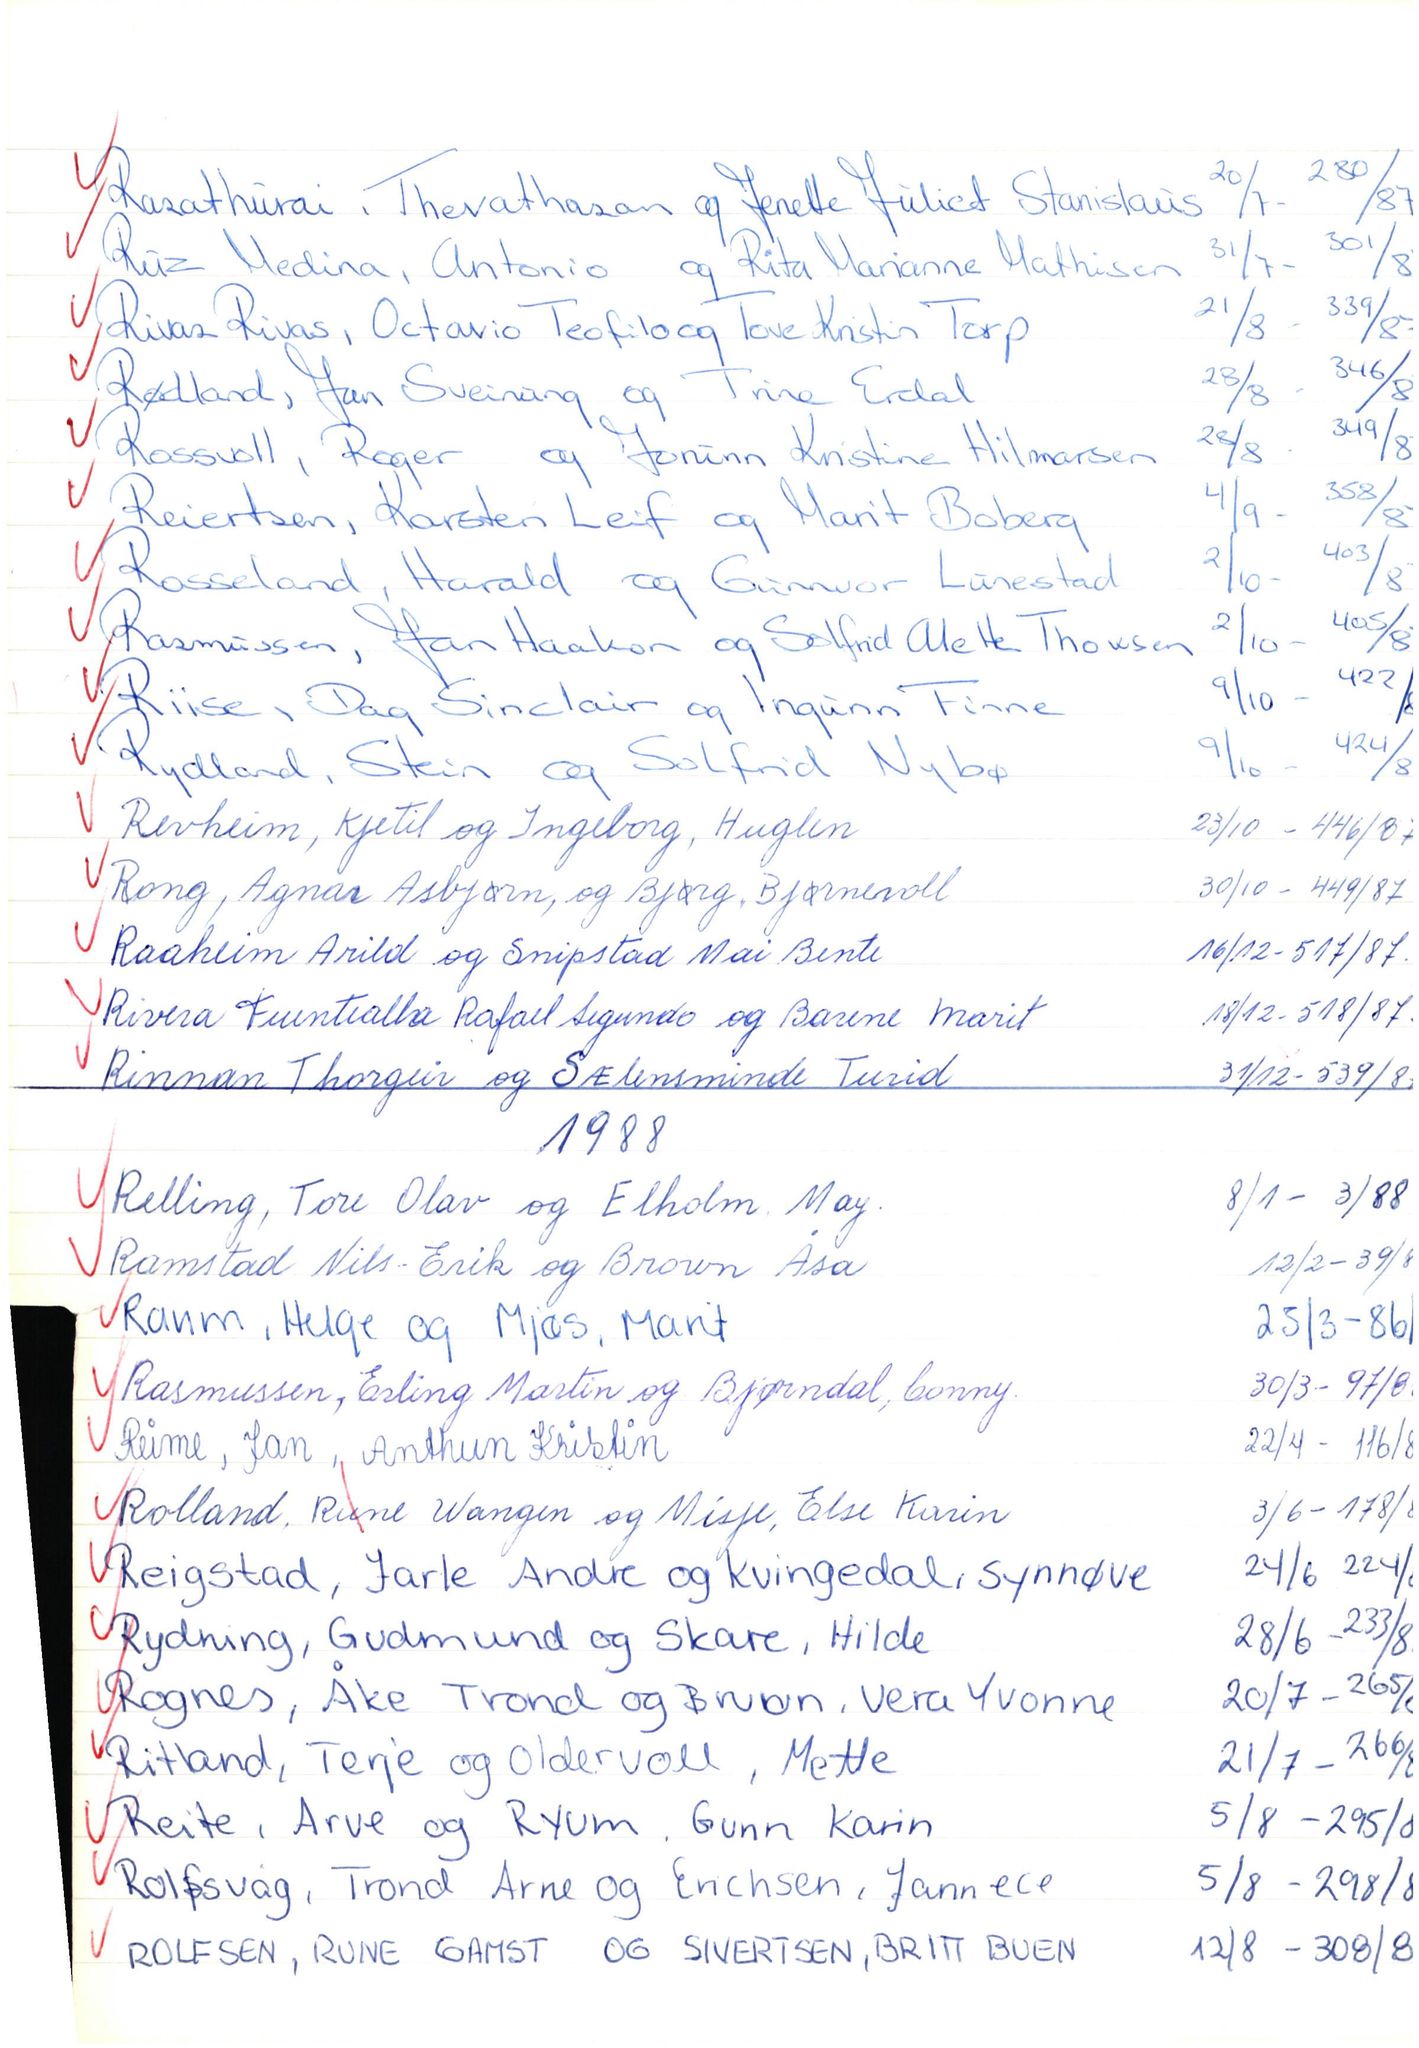 Rasathurai, Thevathasan og Jenette Juliet Stanislaus 20/7- 280/87
Ruz Medina, Antonio og Rita Marianne Mathisen 31/7- 301/8
Rivas Rivas, Octavio Teofilo og Tove Kristin Torp 21/8 - 339/8
Rødland, Jan Sveinung og Trine Erdal 28/8 - 346/8
Rossvoll, Roger og Jorunn Kristine Hilmarsen 28/8 - 349/8
Reiertsen, Karsten Leif og Marit Boberg 4/9 - 358/8
Rosseland, Harald og Gunnvor Lunestad 2/10- 403/8
Rasmussen, Jan Haakon og Solfrid Alette Thowsen 2/10 - 405/8
Riise, Dag Sinclair og Ingunn Finne 9/10 - 422/8
Rydland, Stein og Solfrid Nybø 9/10 - 424/8
Revheim, Kjetil og Ingeborg, Huglen 23/10 - 446/87
Rong, Agnar Asbjørn, og Bjørg, Bjørnevoll 30/10 - 449/87
Raaheim Arild og Snipstad Mai Bente 16/12-517/87.
Rivera Rafael Segundo og Barene Marit 18/12-518/87.
Rinnan Thorgeir og Sælensminde Turid 31/12-539/8
1988
Relling, Tore Olav og Elholm, May. 8/1 - 3/88
Ramstad Nils-Erik og Brown Åsa 12/2-39/8
Raum, Helge og Mjøs, Marit 25/3-86/
Rasmussen, Erling Martin og Bjørndal, Conny. 30/3- 97/8
Reime, Jan, Anthun Kristin 22/4 - 116/8
Rolland, Rune Wangen og Misje, Else Karin 3/6-178/8
Reigstad, Jarle Andre og Kvingedal, Synnøve 24/6 224/
Rydning, Gudmund og Skare, Hilde 28/6 -233/8
Rognes, Åke Trond og Bruun, Vera Yvonne 20/7 - 265/
Ritland, Terje og Oldervoll, Mette 21/7 - 266/8
Reite, Arve og Ryum, Gunn Karin 5/8 -295/8
Rolfsvåg, Trond Arne og Erichsen, Jannece 5/8 -298/8
ROLFSEN, RUNE GAMST OG SIVERTSEN, BRITT BUEN 12/8 -308/8